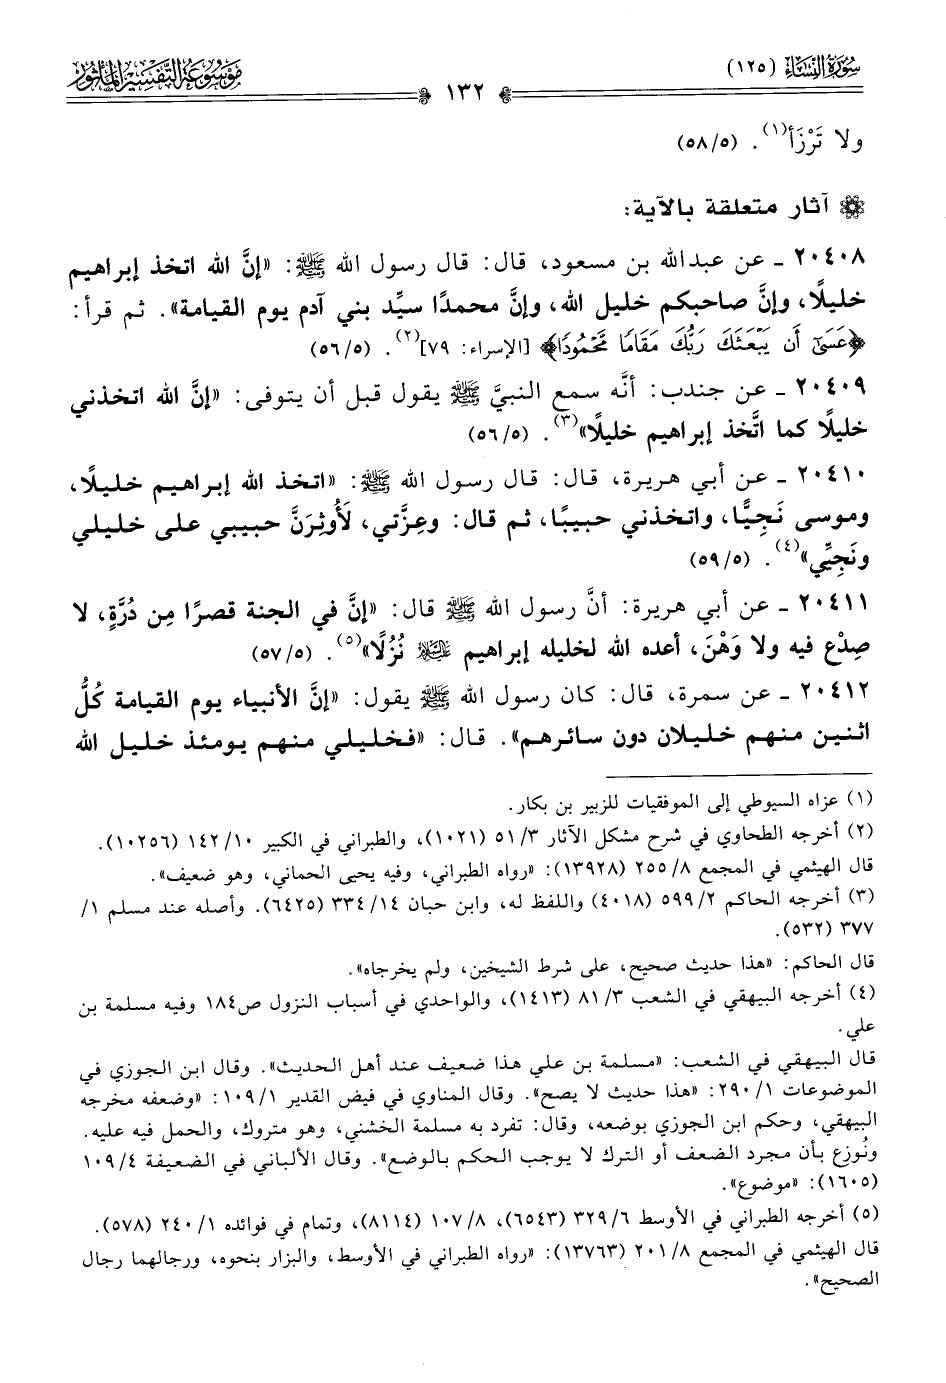 سورة النساء (١٢٥)
١٣٢
موسوعة التفسير المأثور
ولا تَرْزَأ(١). (٥٨/٥)
آثار متعلقة بالآية:
٢٠٤٠٨ ـ عن عبدالله بن مسعود، قال: قال رسول الله ﷺ: «إنَّ الله اتخذ إبراهيم
خليلًا، وإنَّ صاحبكم خليل الله، وإنَّ محمدًا سيِّد بني آدم يوم القيامة». ثم قرأ:
﴿عَسَىٰٓ أَن يَبْعَثَكَ رَبُّكَ مَقَامًا مَّحْمُودًا﴾ [الإسراء: ٧٩](٢). (٥٦/٥)
٢٠٤٠٩ ـ عن جندب: أنَّه سمع النبيَّ ﷺ يقول قبل أن يتوفى: «إنَّ الله اتخذني
خليلًا كما اتَّخذ إبراهيم خليلًا»(٣). (٥٦/٥)
٢٠٤١٠ ـ عن أبي هريرة، قال: قال رسول الله ﷺ: «اتخذ الله إبراهيم خليلًا،
وموسى نَجِيًّا، واتخذني حبيبًا، ثم قال: وعِزَّتي، لَأُوثِرَنَّ حبيبي على خليلي
ونَجِيِّي»(٤). (٥٩/٥)
٢٠٤١١ ـ عن أبي هريرة: أنَّ رسول الله ﷺ قال: «إنَّ في الجنة قصرًا مِن دُرَّةٍ، لا
صِدْع فيه ولا وَهْنَ، أعده الله لخليله إبراهيم عليه السلام نُزُلًا»(٥). (٥٧/٥)
٢٠٤١٢ ـ عن سمرة، قال: كان رسول الله ﷺ يقول: «إنَّ الأنبياء يوم القيامة كُلُّ
اثنين منهم خليلان دون سائرهم». قال: «فخليلي منهم يومئذ خليل الله
(١) عزاه السيوطي إلى الموفقيات للزبير بن بكار.
(٢) أخرجه الطحاوي في شرح مشكل الآثار ٣/ ٥١ (١٠٢١)، والطبراني في الكبير ١٠/ ١٤٢ (١٠٢٥٦).
قال الهيثمي في المجمع ٨/ ٢٥٥ (١٣٩٢٨): «رواه الطبراني، وفيه يحيى الحماني، وهو ضعيف».
(٣) أخرجه الحاكم ٢/ ٥٩٩ (٤٠١٨) واللفظ له، وابن حبان ١٤/ ٣٣٤ (٦٤٢٥). وأصله عند مسلم ١/
٣٧٧ (٥٣٢).
قال الحاكم: «هذا حديث صحيح، على شرط الشيخين، ولم يخرجاه».
(٤) أخرجه البيهقي في الشعب ٣/ ٨١ (١٤١٣)، والواحدي في أسباب النزول ص١٨٤ وفيه مسلمة بن
علي.
قال البيهقي في الشعب: «مسلمة بن علي هذا ضعيف عند أهل الحديث». وقال ابن الجوزي في
الموضوعات ١/ ٢٩٠: «هذا حديث لا يصح». وقال المناوي في فيض القدير ١/ ١٠٩: «وضعفه مخرجه
البيهقي، وحكم ابن الجوزي بوضعه، وقال: تفرد به مسلمة الخشني، وهو متروك، والحمل فيه عليه.
ونُوزع بأن مجرد الضعف أو الترك لا يوجب الحكم بالوضع». وقال الألباني في الضعيفة ٤/ ١٠٩
(١٦٠٥): «موضوع».
(٥) أخرجه الطبراني في الأوسط ٦/ ٣٢٩ (٦٥٤٣)، ٨/ ١٠٧ (٨١١٤)، وتمام في فوائده ١/ ٢٤٠ (٥٧٨).
قال الهيثمي في المجمع ٨/ ٢٠١ (١٣٧٦٣): «رواه الطبراني في الأوسط، والبزار بنحوه، ورجالهما رجال
الصحيح».